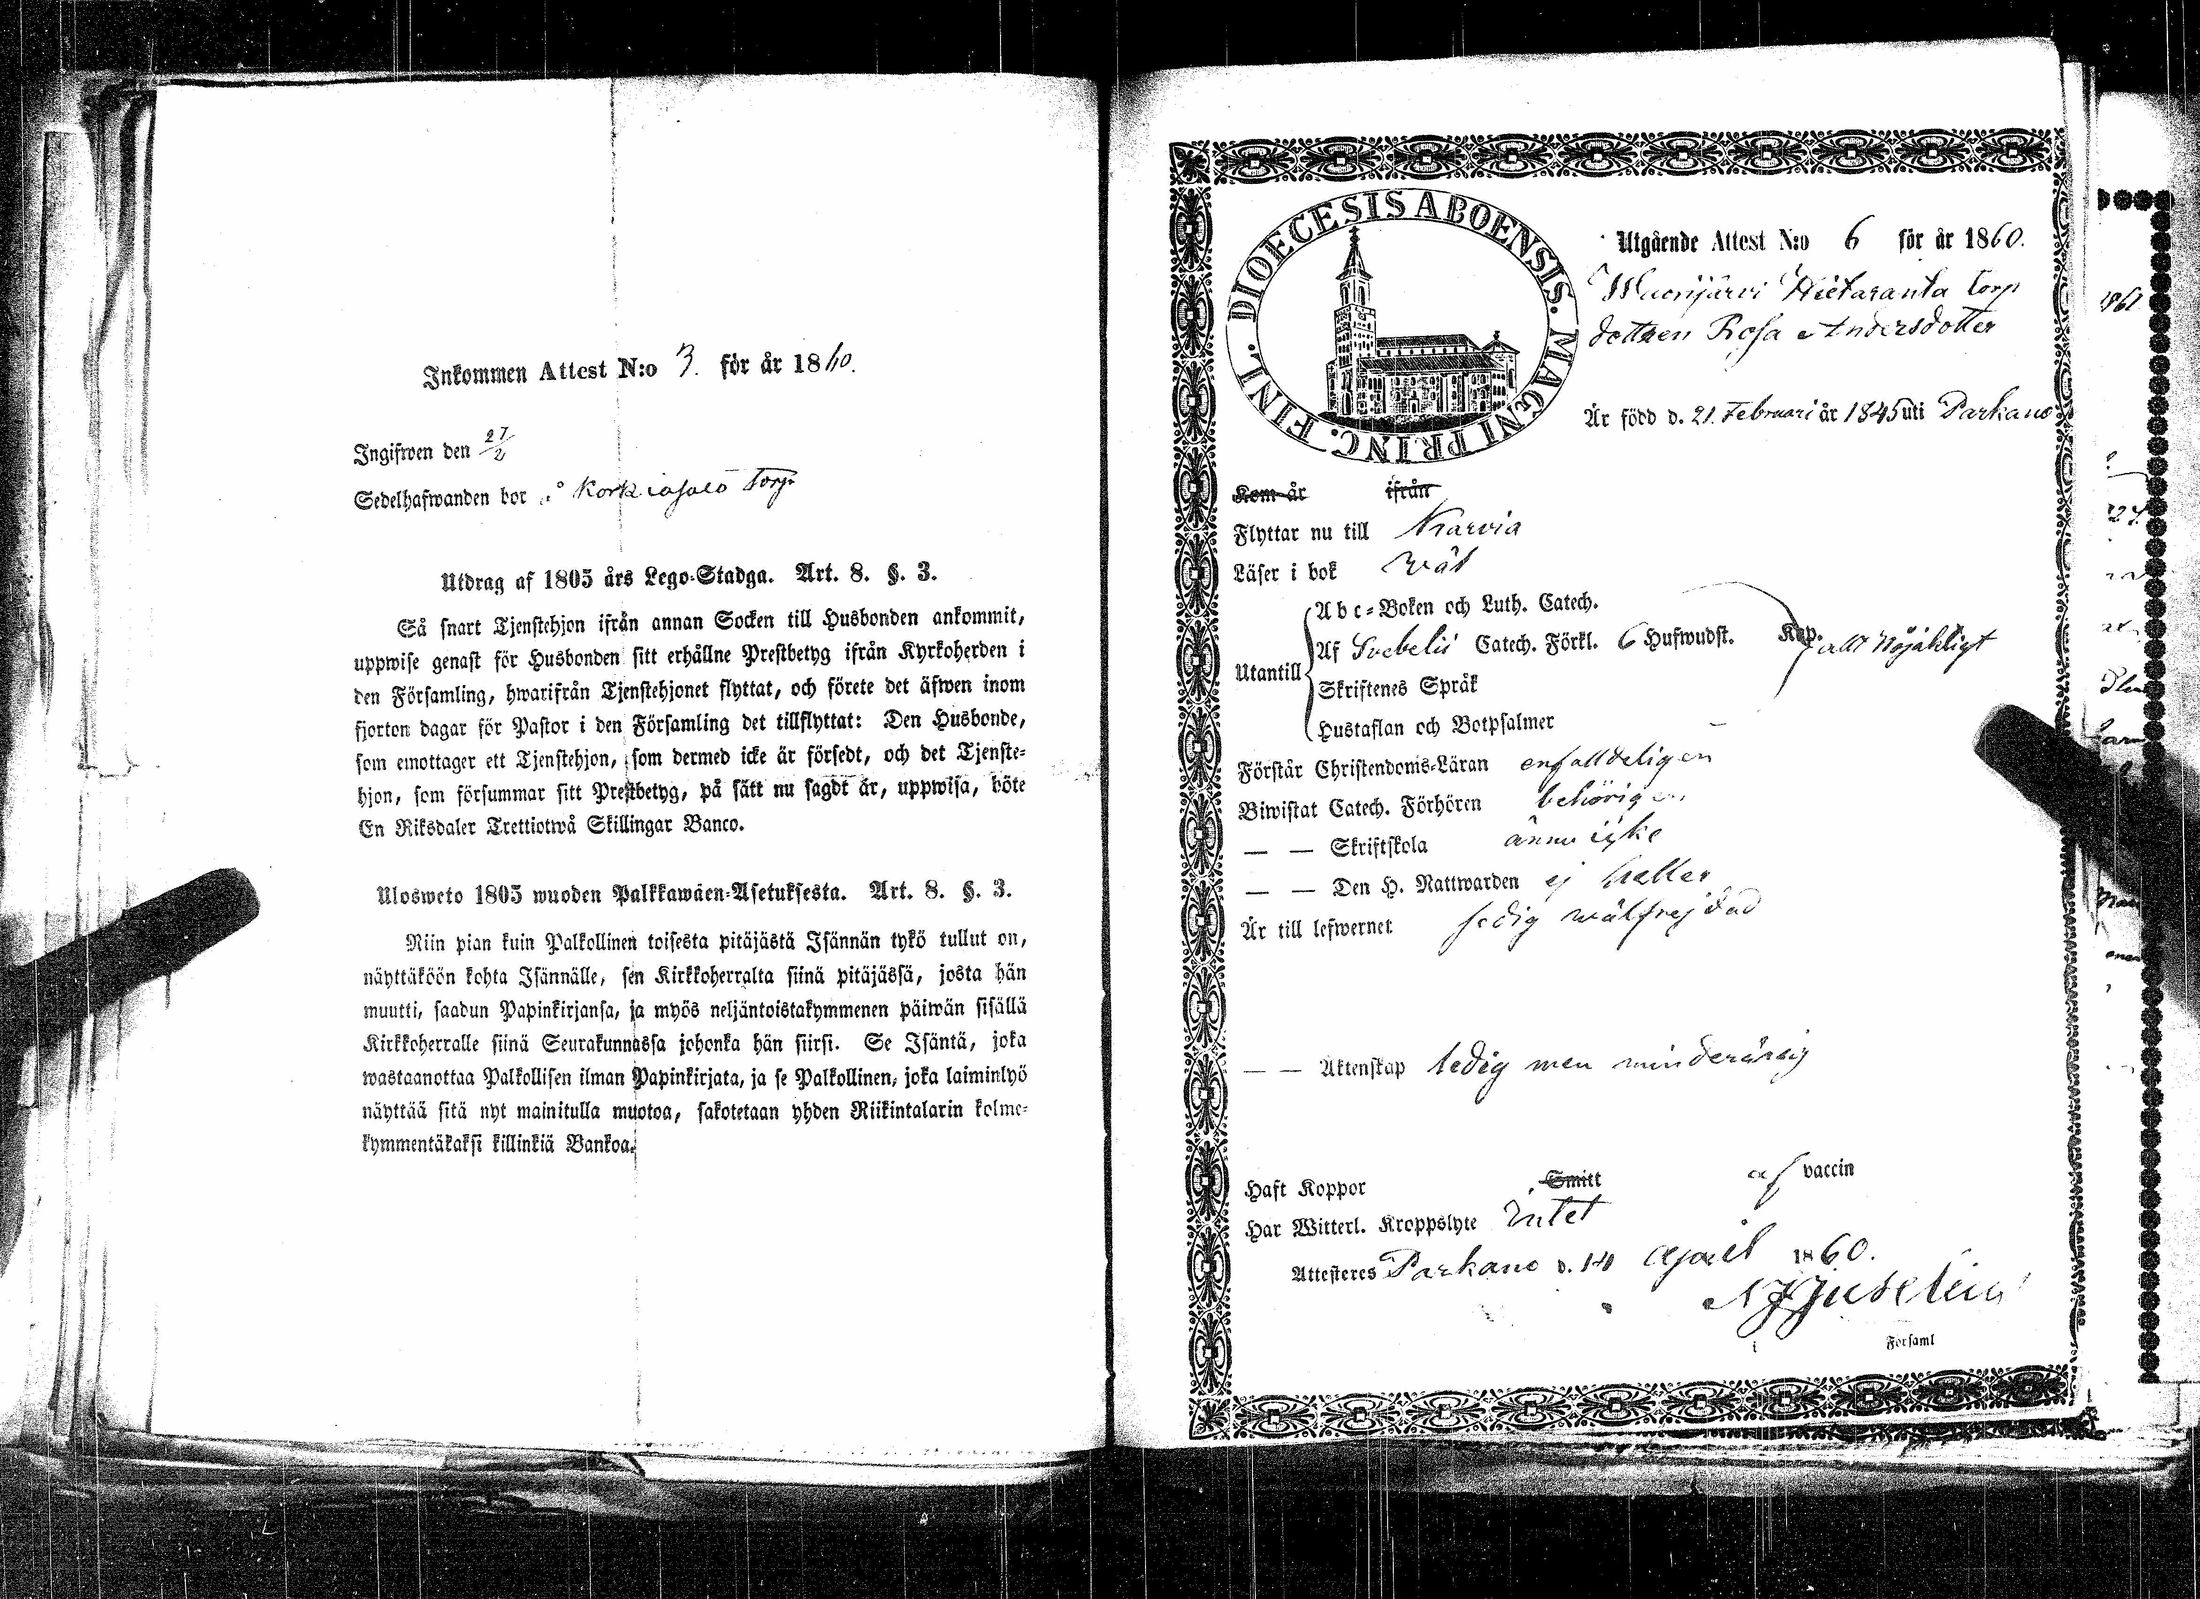 Inkommen Attest N:o 3. för år 1860.
Ingifwen den 27/2
Sedelhafwanden bor å Korkiasalo Torp
Utdrag af 1805 års Lego-Stadga. Art. 8. §. 3.
Så snart Tjenstehjon ifrån annan Socken till Husbonden ankommit,
uppwise genast för Husbonden sitt erhållne Prestbetyg ifrån Kyrkoherden i
den Församling, hwarifrån Tjenstehjonet flyttat, och förete det äfwen inom
fjorton dagar för Pastor i den Församling det tillflyttat: Den Husbonde,
som emottager ett Tjenstehjon, som dermed icke är försedt, och det Tjenste-
hjon, som försummar sitt Prestbetyg, på sätt nu sagdt är, uppwisa, böte
En Riksdaler Trettiotwå Skillingar Banco.
Ulosweto 1805 wuoden Palkkawäen-Asetuksesta. Art. 8. §. 3.
Niin pian kuin Palkollinen toisesta pitäjästä Isännän tykö tullut on,
näyttäköön kohta Isännälle, sen Kirkkoherralta siinä pitäjässä, josta hän
muutti, saadun Papinkirjansa, ja myös neljäntoistakymmenen päiwän sisällä
Kirkkoherralle siinä Seurakunnassa johonka hän siirsi. Se Isäntä, joka
wastaanottaa Palkollisen ilman Papinkirjata, ja se Palkollinen, joka laiminlyö
näyttää sitä nyt mainitulla muotoa, sakotetaan yhden Riikintalarin kolme-
kymmentäkaksi killinkiä Bankoa.
DIOECESIS ABOENSIS. MAGNI PRINC. FINL.
Utgående Attest N:o 6 för år 1860.
Wuorijärvi Hietaranta torp
dottren Rosa Andersdotter
Är född d. 21. Februari år 1845 uti Parkano
Kom år ifrån
Flyttar nu till Karvia
Läser i bok wäl
Utantill
Abc-Boken och Luth. Catech.
Af Svebelii Catech. Förkl. 6 Hufwudst. Kap. allt Nöjaktligt
Skriftenes Språk
Hustaflan och Botpsalmer
Förstår Christendoms-Läran enfalldeligen
Biwistat Catech. Förhören behörigen
— — Skriftskola ännu icke
— — Den H. Nattwarden ej heller
Är till lefwernet sedig wälfrejdad
— — Äktenskap ledig men minderårig
Haft Koppor Smitt af vaccin
Har Witterl. Kroppslyte Intet
Attesteres Parkano d. 14 April 1860.
Juselius
i Forsaml